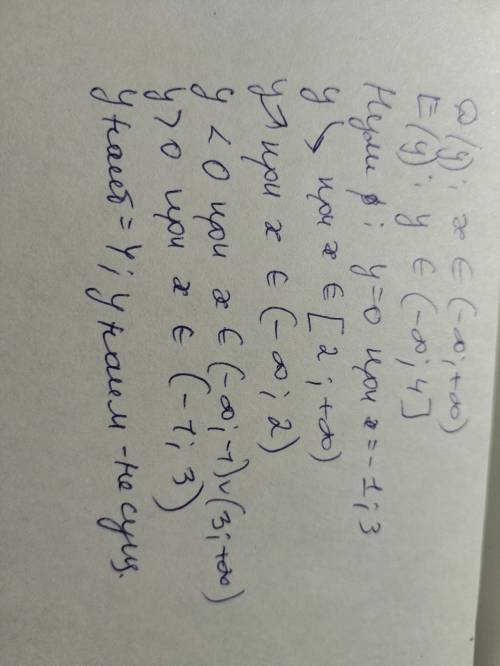 D(y): x ∈ (-∞; +∞)
E(y): y ∈ (-∞; 4]
Нули f: y=0 при x=-1; 3
y ↘ при x ∈ [2; +∞)
y ↗ при x ∈ (-∞; 2)
y < 0 при x ∈ (-∞; -1) ∪ (3; +∞)
y > 0 при x ∈ (-1; 3)
y наиб = 4; y наим - не сущ.